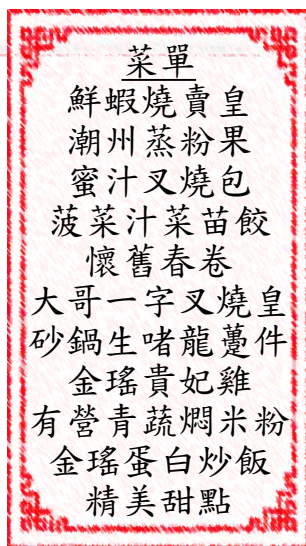 菜單
鮮蝦燒賣皇
潮州蒸粉果
蜜汁叉燒包
菠菜汁菜苗餃
懷舊春卷
大哥一字叉燒皇
砂鍋生啫龍躉件
金瑤貴妃雞
有營青蔬燜米粉
金瑤蛋白炒飯
精美甜點